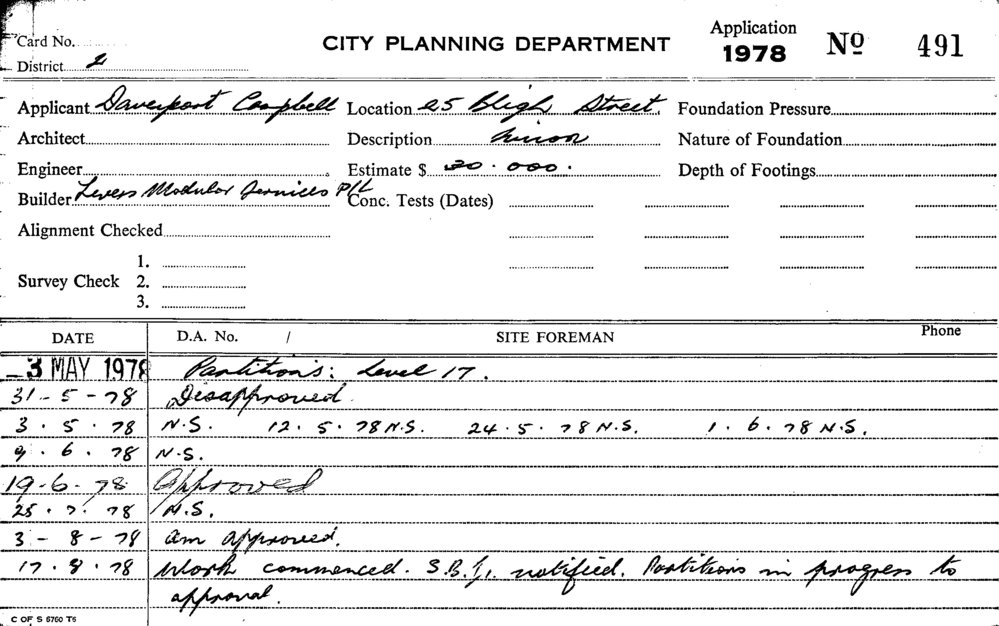 Card No.
District 2
CITY PLANNING DEPARTMENT
Application 1978 No 491
Applicant Davenport Campbell Location 25 Bligh Street Foundation Pressure
Architect Description Minor Nature of Foundation
Engineer Estimate $ 20.000. Depth of Footings
Builder Levers Modular Services P/L Conc. Tests (Dates)
Alignment Checked
Survey Check 1.
2.
3.
DATE D.A. No. / SITE FOREMAN Phone
-3 MAY 1978 Partitions: Level 17.
31-5-78 Disapproved.
3.5.78 N.S. 12.5.78 N.S. 24.5.78 N.S. 1.6.78 N.S.
9.6.78 N.S.
19-6-78 Approved
25.7.78 N.S.
3-8-78 am approved.
17.8.78 Work commenced. S.B.I. notified. Partitions in progress to
approval.
C OF S 6760 T6